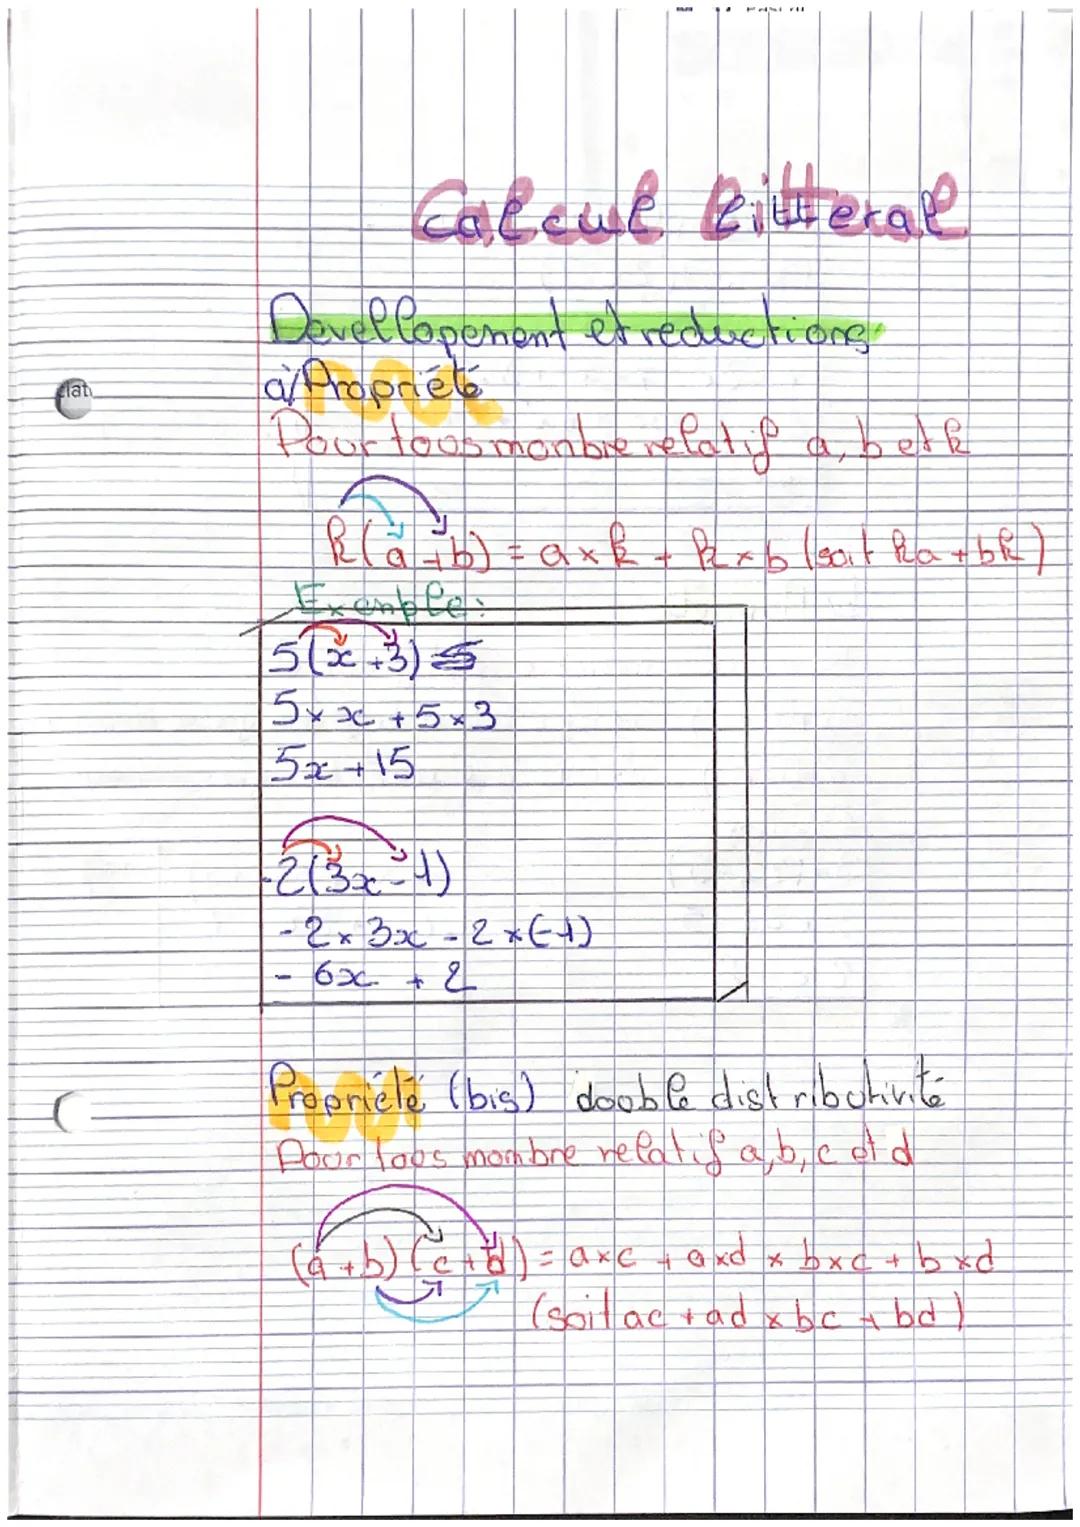 Calcul litteral
Devellopement et reductions
a) Propriété
Pour toos monbre relatif a, b et k
k(a+b) = a×k + k×b (soit ka+bk)
Exemple:
5(x+3)
5×x +5×3
5x+15
-2(3x-1)
-2×3x -2×(-1)
- 6x + 2
Propriété (bis) dooble distributivité
Pour toos mombre relatif a,b,c et d
(a+b)(c+d) = a×c + a×d × b×c + b×d
(soit ac +ad ×bc + bd)